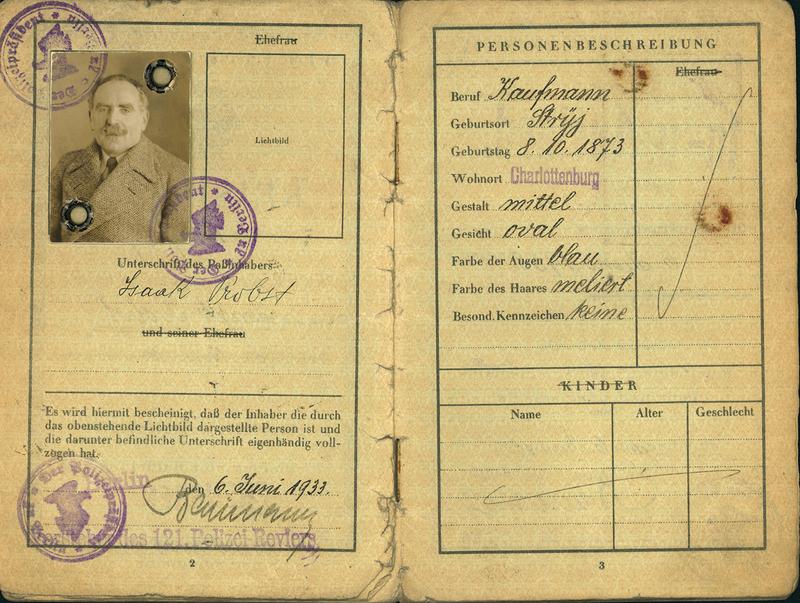 Ehefrau
Lichtbild
Unterschrift des Paßinhabers
Isaak Probst
und seiner Ehefrau
Es wird hiermit bescheinigt, daß der Inhaber die durch
das obenstehende Lichtbild dargestellte Person ist und
die darunter befindliche Unterschrift eigenhändig voll-
zogen hat.
Berlin
den 6. Juni 1933.
des 121. Polizei Reviers
Der Polizeipräsident
2
PERSONENBESCHREIBUNG
Ehefrau
Beruf Kaufmann
Geburtsort Stryj
Geburtstag 8. 10. 1873
Wohnort Charlottenburg
Gestalt mittel
Gesicht oval
Farbe der Augen blau
Farbe des Haares meliert
Besond. Kennzeichen keine
KINDER
Name Alter Geschlecht
3